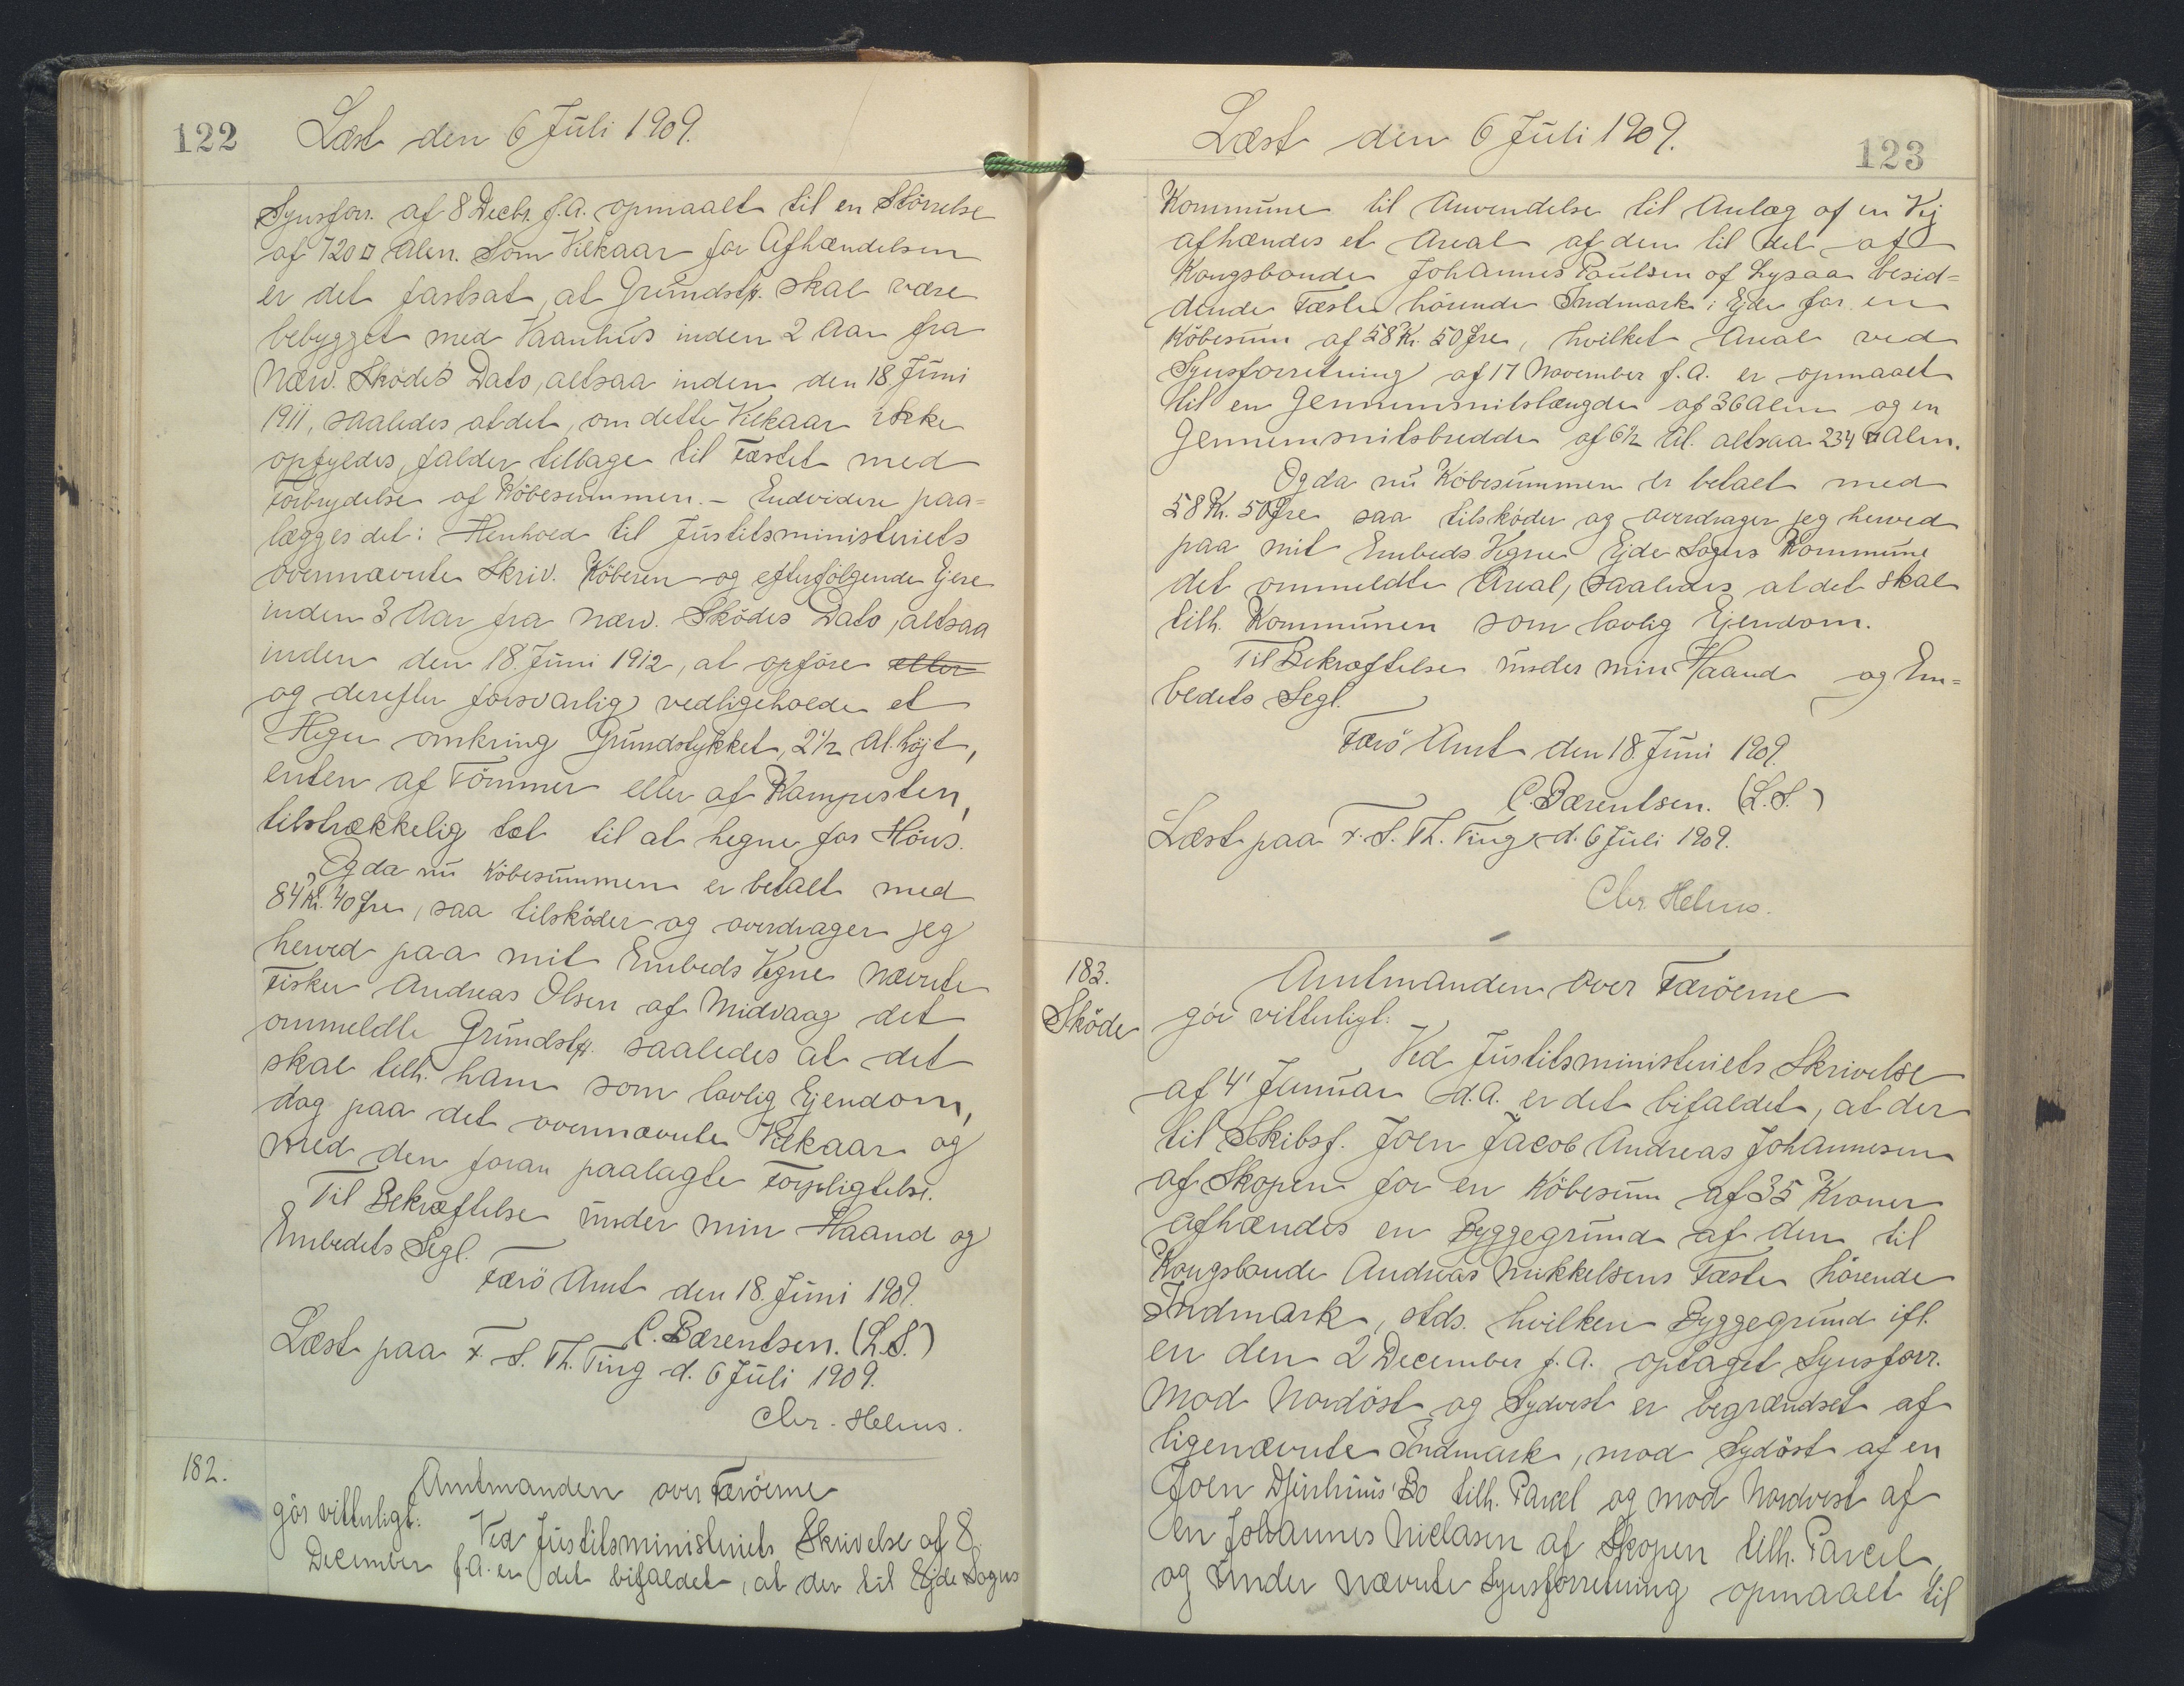 122
Læst den 6 Juli 1909.
Synsforr. af 8 Decbr. f.A. opmaalt til en Störrelse
af 720 □ Alen. Som Vilkaar for Afhændelsen
er det fastsat, at Grundstk. skal være
bebygget med Vaanhus inden 2 Aar fra
nærv. Skødes Dato, altsaa inden den 18 Juni
1911, saaledes at det, om dette Vilkaar ikke
opfyldes, falder tilbage til Fæstet med
Forbrydelse af Köbesummen. – Endvidere paa=
lægges det i Henhold til Justitsministeriets
ovennævnte Skriv. Köberen og efterfölgende Ejere
inden 3 Aar fra nærv. Sködes Dato, altsaa
inden den 18. Juni 1912, at opföre eller
og derefter forsvarlig vedligeholde et
Hegn omkring Grundstykket, 2½ Al. höjt,
enten af Tömmer eller af Kampesten,
tilstrækkelig tæt til at hegne for Höns.
Og da nu Köbesummen er betalt med
84 Kr. 40 Øre, saa tilsköder og overdrager jeg
herved paa mit Embeds Vegne nævnte
Fisker Andreas Olsen af Midvaag det
ommeldte Grundstk. saaledes at det
skal tilh. ham som lovlig Ejendom,
dog paa det ovennævnte Vilkaar og
med den foran paalagte Forpligtelse.
Til Bekræftelse under min Haand og
Embedets Segl.
Færö Amt den 18. Juni 1909.
C. Bærentsen. (L.S.)
Læst paa F. S. Th. Ting d. 6 Juli 1909.
Chr. Helms.
182.
Amtmanden over Færöerne
gör vitterligt:
Ved Justitsministeriets Skrivelse af 8.
December f.A. er det bifaldet, at der til Ejde Sogns
123
Læst den 6 Juli 1909.
Kommune til Anvendelse til Anlæg af en Vej
afhændes et Areal af den til det af
Kongsbonde Johannes Paulsen af Lysaa besid=
dende Fæste hörende Indmark i Ejde for en
Köbesum af 58 Kr. 50 Øre, hvilket Areal ved
Synsforretning af 17 November f.A. er opmaalt
til en Gennemsnitslængde af 36 Alen og en
Gennemsnitsbredde af 6½ Al. altsaa 234 □ Alen.
Og da nu Köbesummen er betalt med
58 Kr. 50 Øre saa tilsköder og overdrager jeg herved
paa mit Embeds Vegne Ejde Sogns Kommune
det ommeldte Areal, saaledes at det skal
tilh. Kommunen som lovlig Ejendom.
Til Bekræftelse under min Haand og Em=
bedets Segl.
Færö Amt den 18. Juni 1909
C. Bærentsen. (L.S.)
Læst paa F. S. Th. Ting d. 6 Juli 1909.
Chr. Helms.
183.
Sköde
Amtmanden over Færöerne
gör vitterligt:
Ved Justitsministeriets Skrivelse
af 4' Januar d.A. er det bifaldet, at der
til Skibsf. Joen Jacob Andreas Johannesen
af Skopen for en Köbesum af 35 Kroner
afhændes en Byggegrund af den til
Kongsbonde Andreas Mikkelsens Fæste hörende
Indmark, stds. hvilken Byggegrund ifl.
en den 2 December f.A. optaget Synsforr.
mod Nordöst og Sydvest er begrændset af
ligenævnte Indmark, mod Sydöst af en
Joen Djurhuus' Bo tilh. Parcel og mod Nordvest af
en Johannes Niclasen af Skopen tilh. Parcel,
og under nævnte Synsforretning opmaalt til